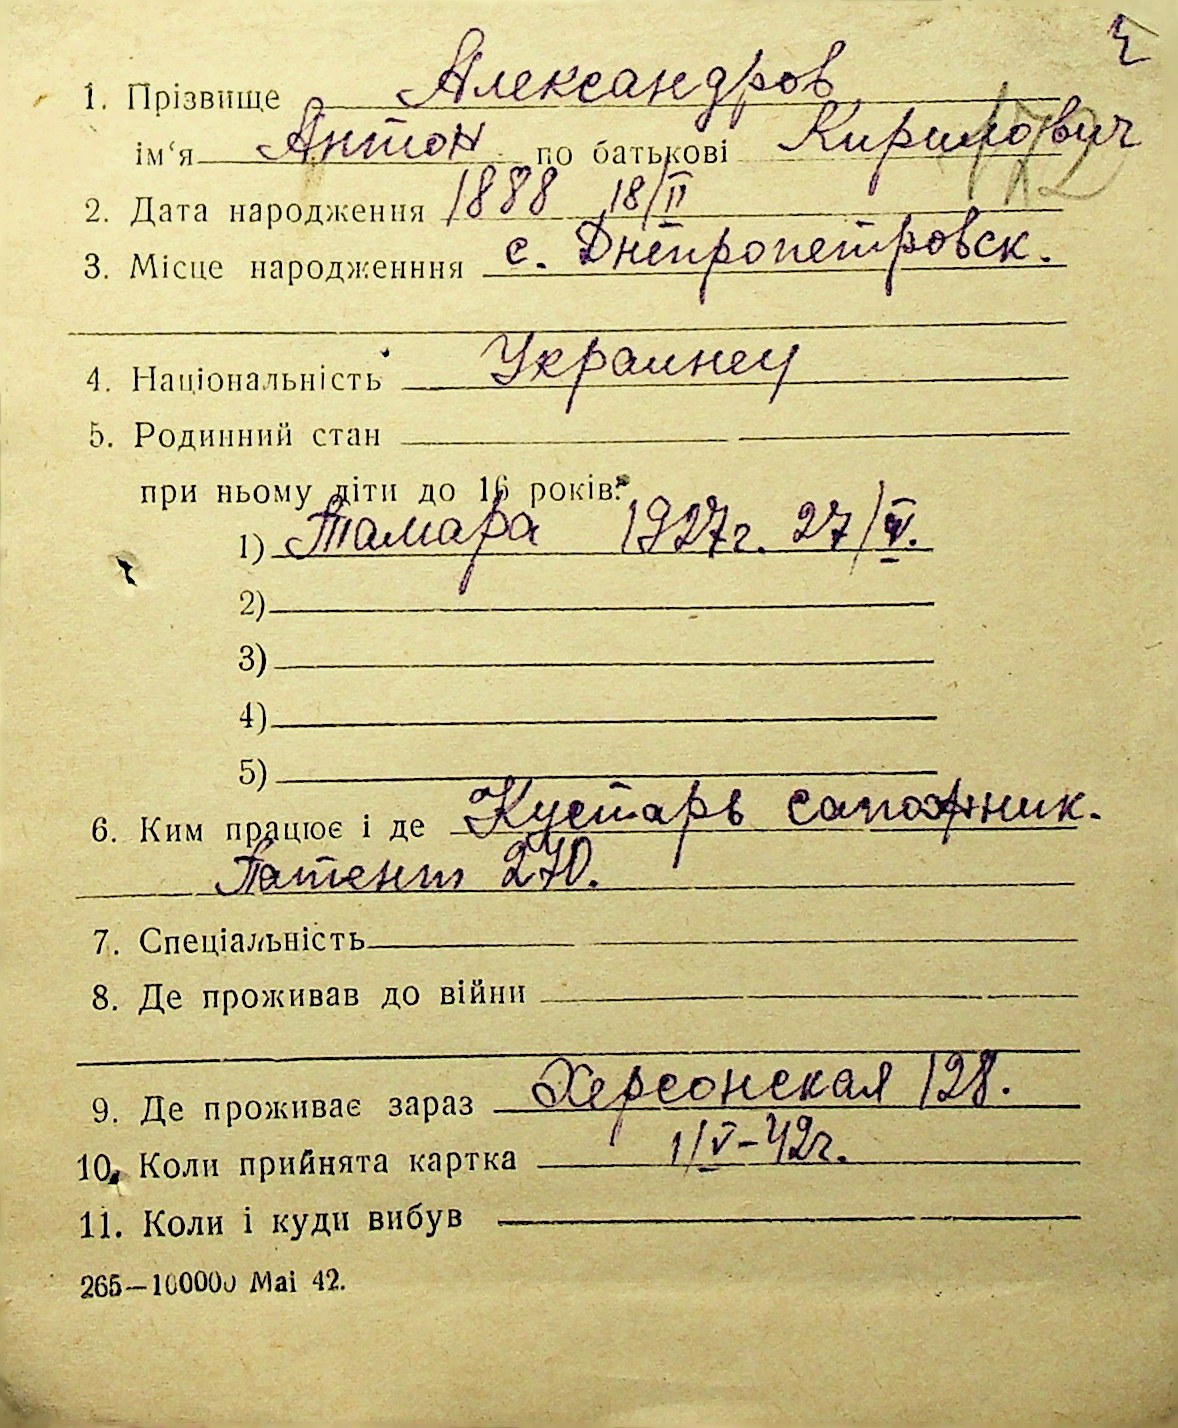 1. Прізвище Александров
ім‘я Антон по батькові Кирилович
2. Дата народження 1888 18/II
3. Місце народженння с. Днепропетровск.
4. Національність Украинец
5. Родинний стан
при ньому діти до 16 років:
1) Тамара 1927г. 27/V.
2)
3)
4)
5)
6. Ким працює і де Кустарь сапожник.
Патент 270.
7. Спеціальність
8. Де проживав до війни
9. Де проживає зараз Херсонская 128.
10. Коли прийнята картка 1/V-42г.
11. Коли і куди вибув
265—100000 Mai 42.